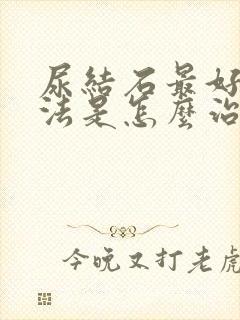 尿結石最好
法是怎麼治
今晚又打老虎